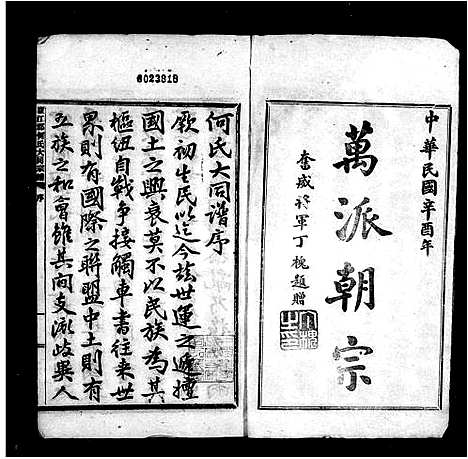 中華民國辛酉年
萬派朝宗
奮威將軍丁槐題贈
6023818
何氏大同譜序
厥初生民以迄今茲世運之遞擅
國土之興衰莫不以民族為其
樞紐自戰爭接觸車書往來世
界則有國際之聯盟中土則有
五族之和會雖其向支派歧異人